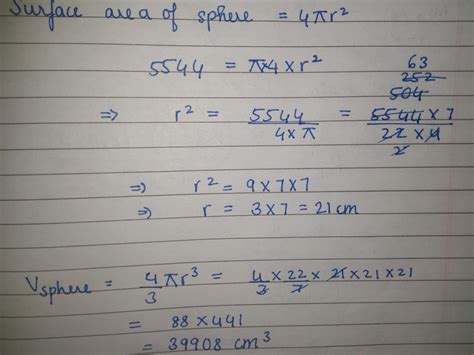 Surface area of sphere = 4πr²
5544 = π×4×r²
63
252
504
⇒ r² = 5544 / 4×π = 5544×7 / 22×4
2
⇒ r² = 9×7×7
⇒ r = 3×7 = 21 cm
V sphere = 4/3 πr³ = 4/3 × 22/7 × 21×21×21
= 88×441
= 39908 cm³